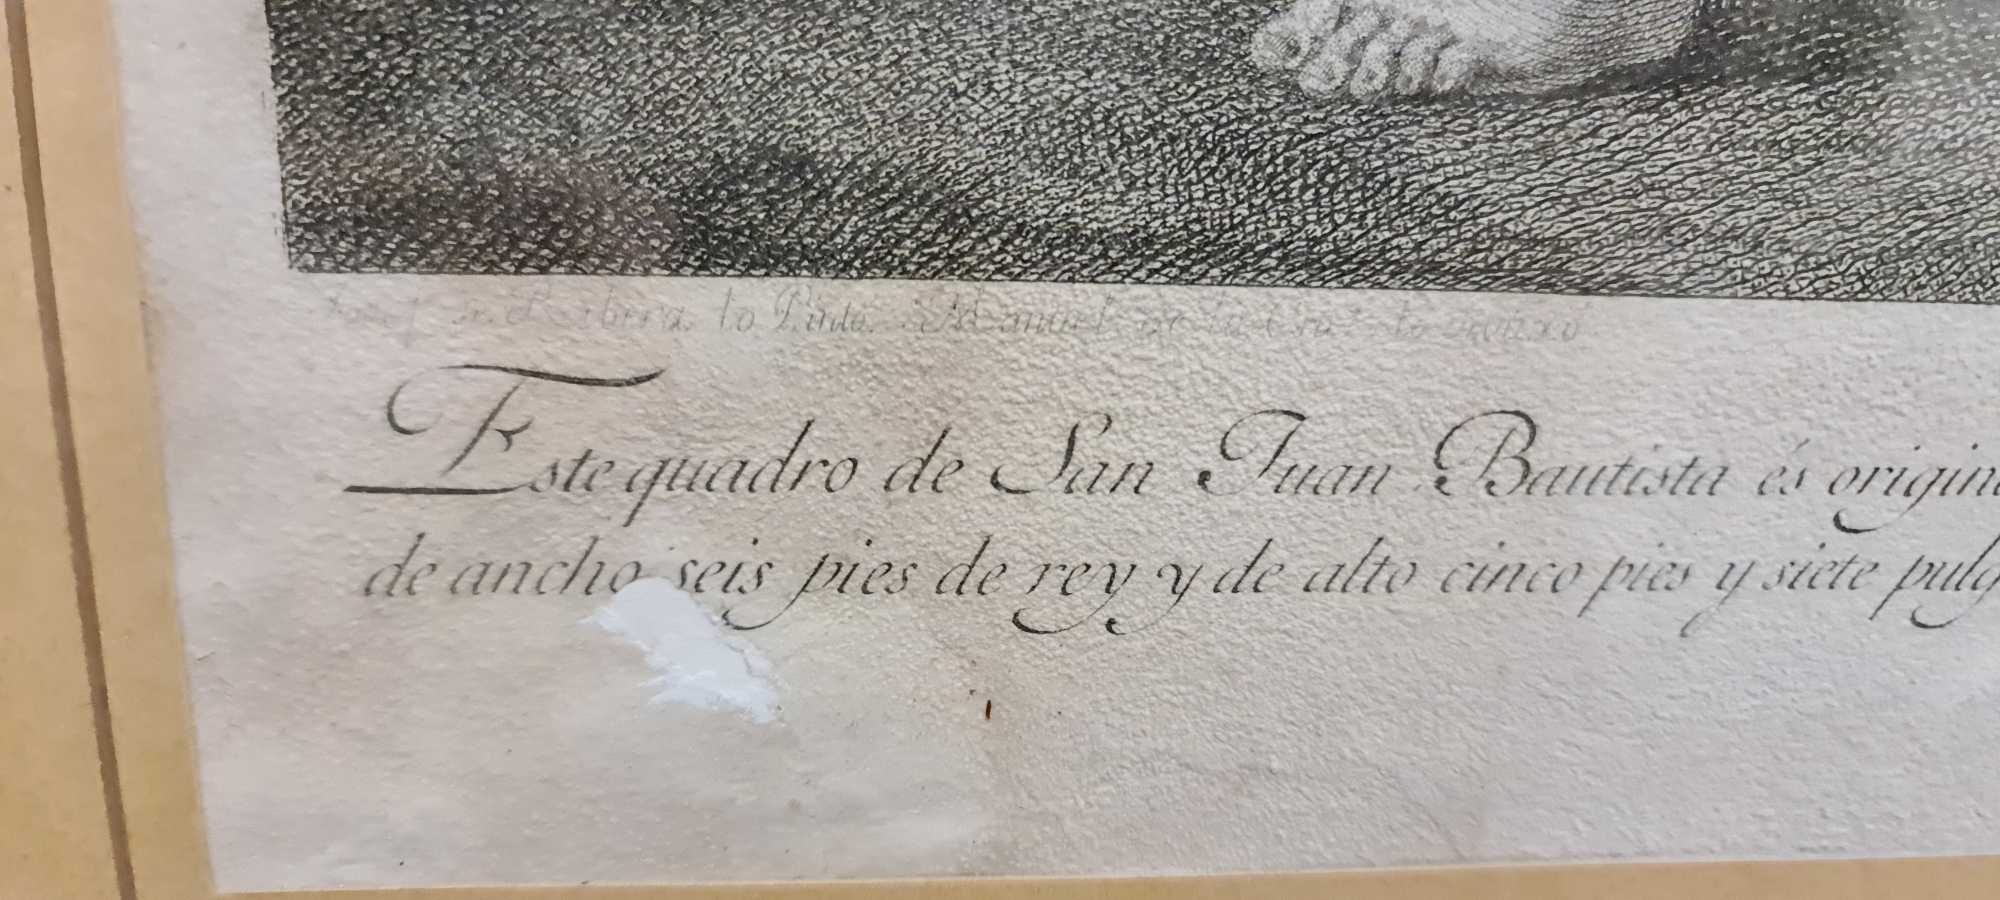 Josef de Ribera lo Pintó. Manuel de la Cruz lo
Este quadro de San Juan Bautista és origin
de ancho seis pies de rey y de alto cinco pies y siete pulg